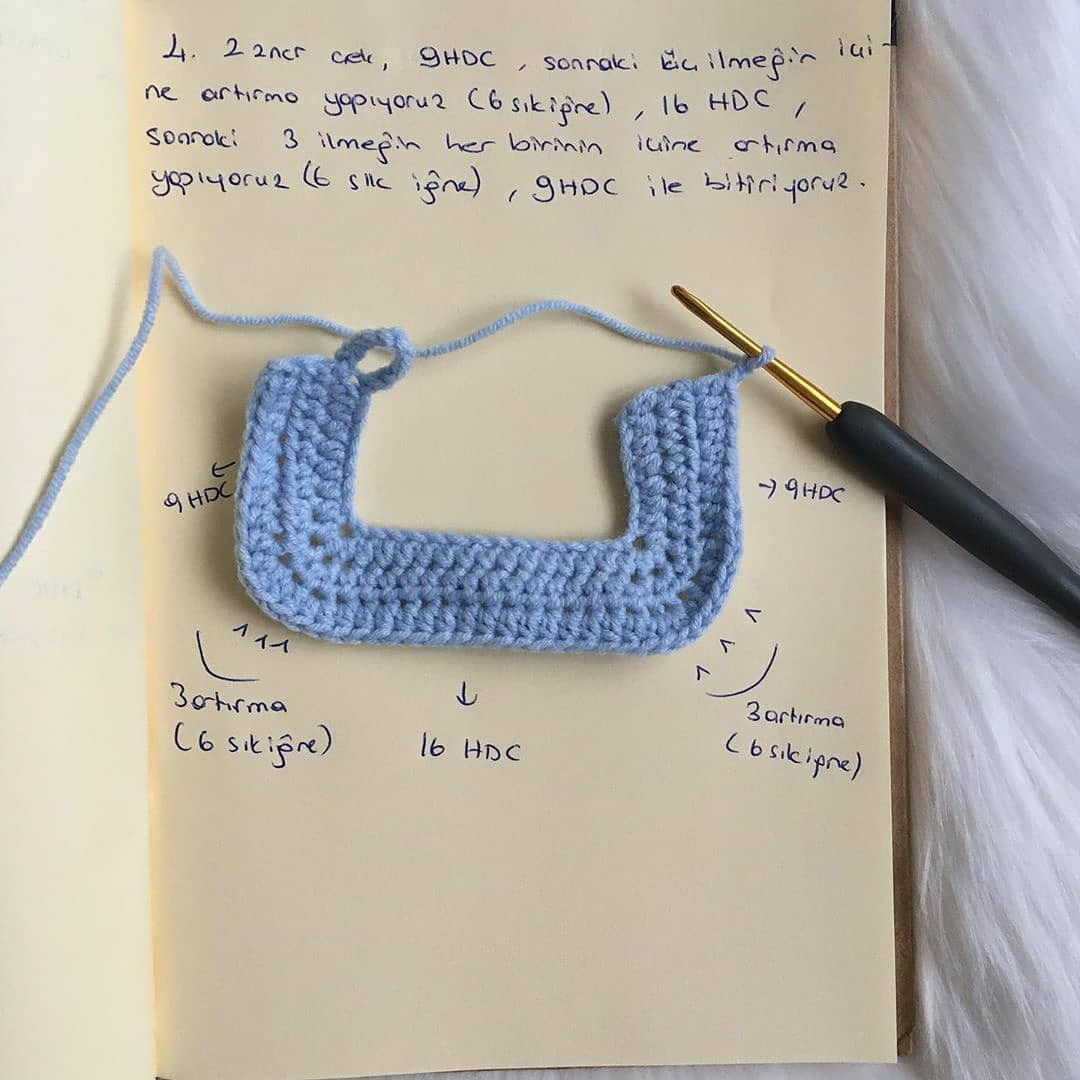 4. 2 zncr çek, 9HDC, sonraki üç ilmeğin içi-
ne artırma yapıyoruz (6 sık iğne), 16 HDC,
sonraki 3 ilmeğin her birinin içine artırma
yapıyoruz (6 sık iğne), 9HDC ile bitiriyoruz.
← 9 HDC
→ 9HDC
3 artırma
(6 sık iğne)
↓
16 HDC
3 artırma
(6 sık iğne)